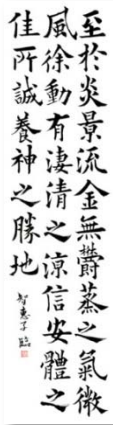 至於炎景流金無鬱蒸之氣微
風徐動有淒清之涼信安體之
佳所誠養神之勝地
智惠子臨